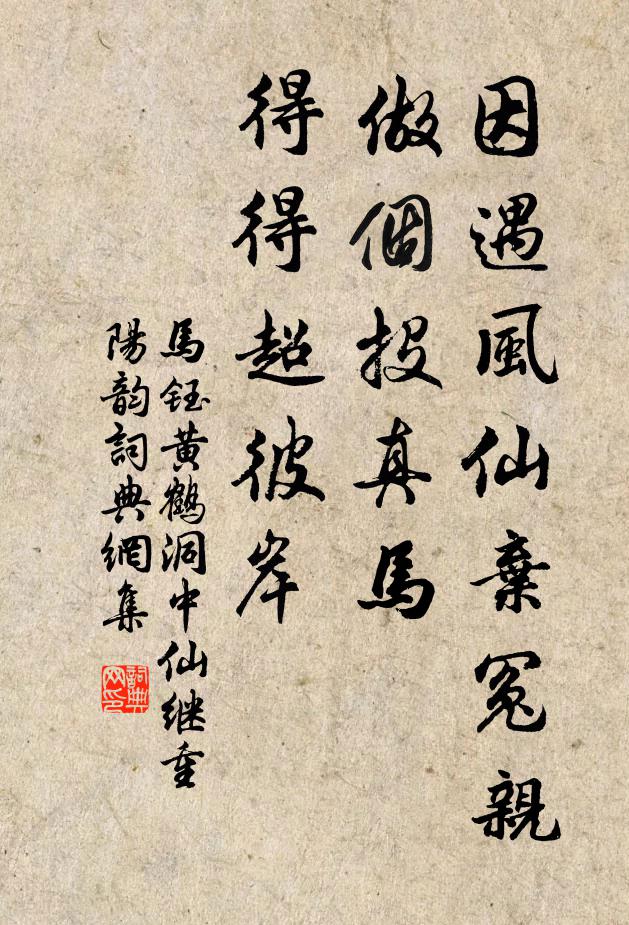 因遇風仙棄冤親
做個投真馬
得得超彼岸
馬鈺黄鶴洞中仙继重
陽韵詞典網集
詞典网印